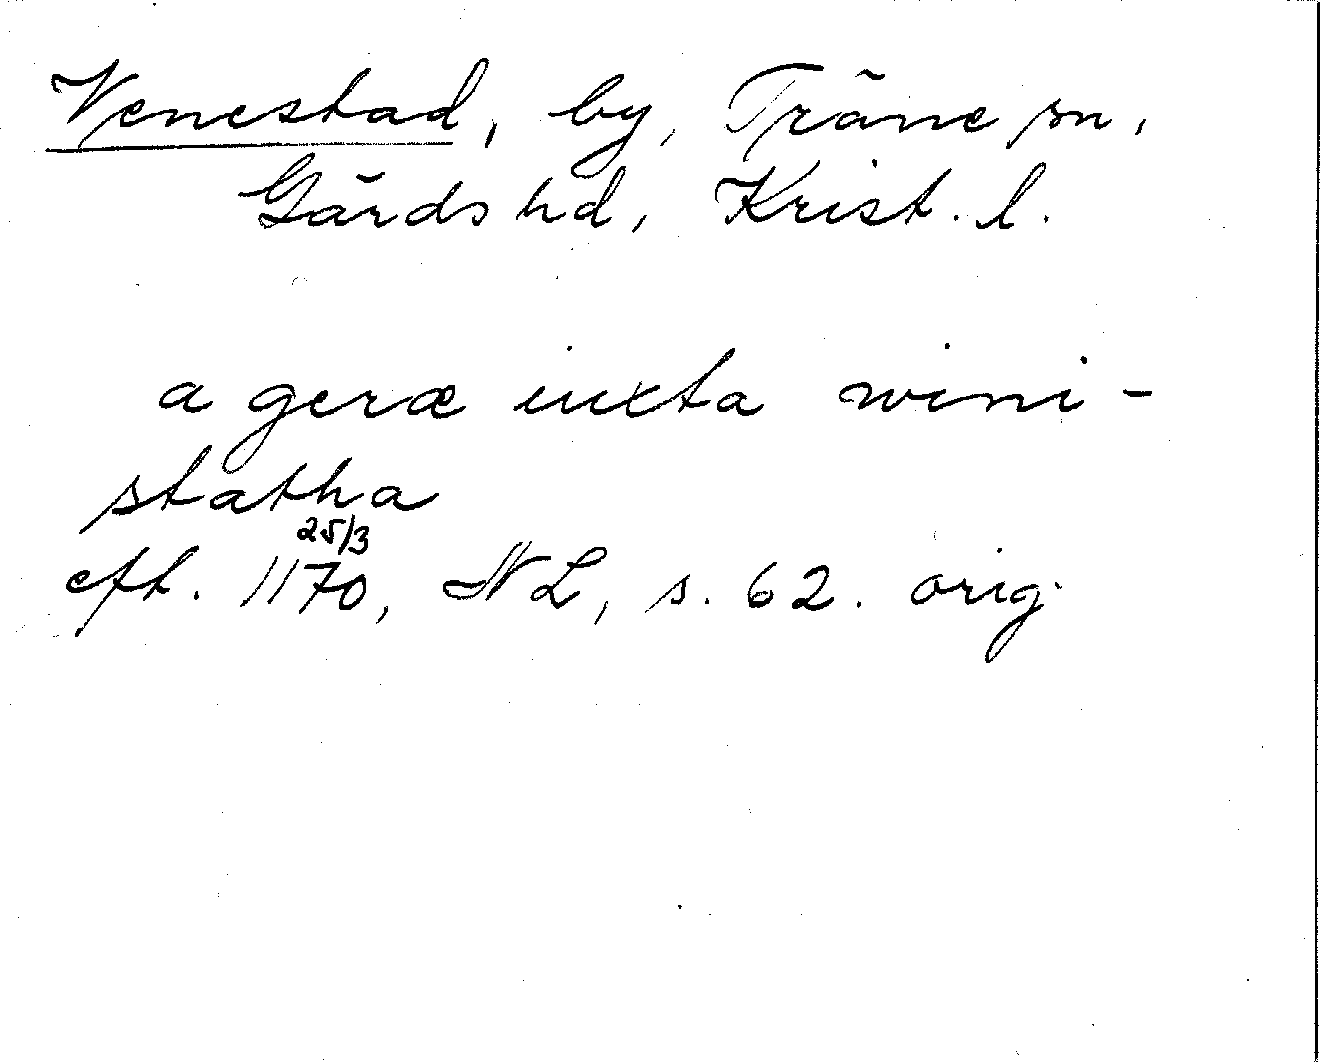 Venestad, by, Träne sn,
Gärds hd, Krist. l.
a geræ iuxta wini-
statha
25/3
eft. 1170, NL, s. 62. orig.